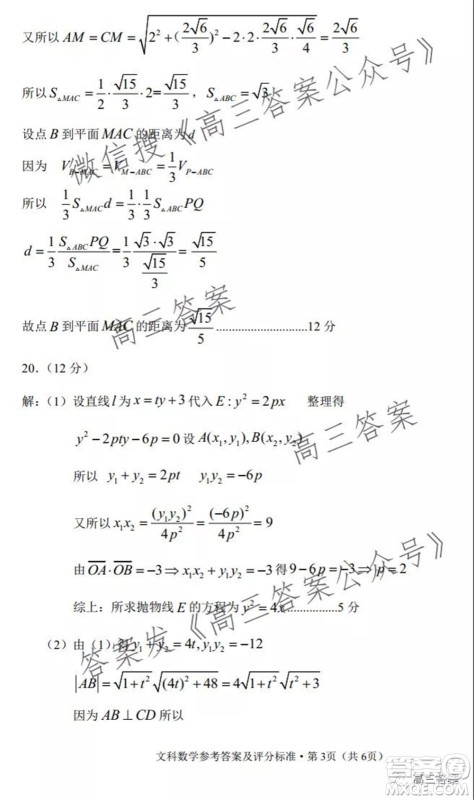 又所以 AM = CM = √(2² + (2√6/3)² − 2·2·(2√6/3)·(√6/4)) = 2√6/3
所以 S△MAC = 1/2·√15/3·2 = √15/3 ， S△ABC = √3
设点 B 到平面 MAC 的距离为 d
因为 V_{B−MAC} = V_{M−ABC} = 1/3 V_{P−ABC}
所以 1/3 S△MAC d = 1/3·1/3 S△ABC PQ
d = 1/3 · S△ABC PQ / S△MAC = 1/3 · √3·√3 / (√15/3) = √15/5
故点 B 到平面 MAC 的距离为 √15/5 ..................12 分
20.（12 分）
解：（1）设直线 l 为 x = ty + 3 代入 E : y² = 2px 整理得
y² − 2pty − 6p = 0 设 A(x₁, y₁), B(x₂, y₂)
所以 y₁ + y₂ = 2pt y₁y₂ = −6p
又所以 x₁x₂ = (y₁y₂)²/4p² = (−6p)²/4p² = 9
由 OA · OB = −3 ⇒ x₁x₂ + y₁y₂ = −3 得 9 − 6p = −3 ⇒ p = 2
综上：所求抛物线 E 的方程为 y² = 4x..............5 分
（2）由（1）得 y₁ + y₂ = 4t, y₁y₂ = −12
|AB| = √(1+t²) √((4t)² + 48) = 4√(1+t²) √(t²+3)
因为 AB ⊥ CD 所以
文科数学参考答案及评分标准·第 3页（共 6页）
微信搜《高三答案公众号》
高三答案
高三答案
答案发《高三答案公众号》
高三答案
答案圈
MXQE.COM